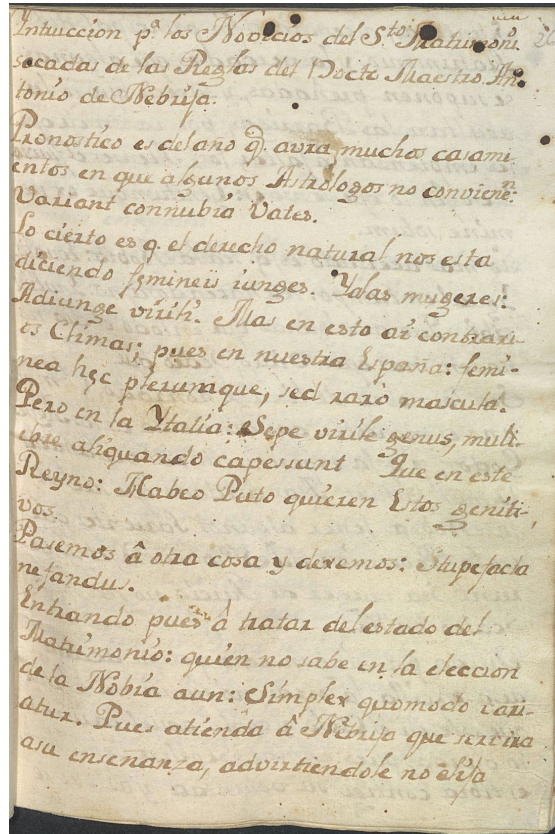 Intruccion pª los Novicios del Sto. Matrimoni
secadas de las Reglas del Docto Maestro An
tonio de Nebrija.
Pronostico es del ano q. avra muchos casami
entos en que algunos Astrologos no convienen:
Variant connubia Vates.
Lo cierto es q. el derecho natural nos esta
diciendo femineis iunges. Yalas mugeres:
Adiunge virili. Mas en esto ai contrari
os Climas; pues en nuestra España: femi-
nea hęc plerumque, sed raro mascula.
Pero en la Ytalia: Sepe virile genus, muli-
ebre aliquando capessunt Que en este
Reyno: Habeo Puto quieren Estos geniti-
vos.
Pasemos â otra cosa y dexemos: Stupefacta
nefandus.
Entrando pues â tratar del estado del
Matrimonio: quien no sabe en la eleccion
de la Nobia aun: Simplex quomodo vari
atur. Pues atienda â Nebrija que servira
asu enseñanza, advirtiendole no elija